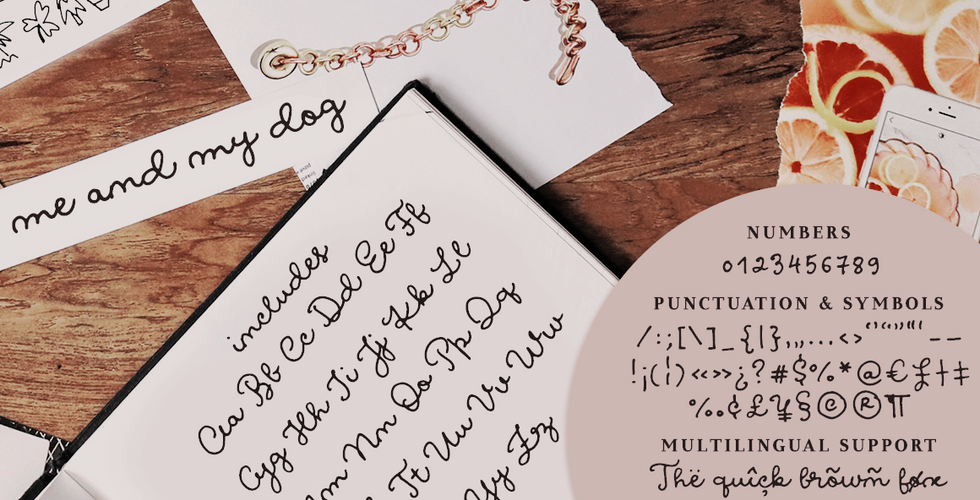 me and my dog
includes
Aa Bb Cc Dd Ee Ff
Gg Hh Ii Jj Kk Ll
Mm Nn Oo Pp Qq
Tt Uu Vv Ww
Yy Zz
NUMBERS
0123456789
PUNCTUATION & SYMBOLS
/:;[\]_{|},,,...<>''""'" --
!¡(¦)«»¿?#$%*@€£†‡
‰¢£¥§©®¶
MULTILINGUAL SUPPORT
Thë quîck brõwñ føx